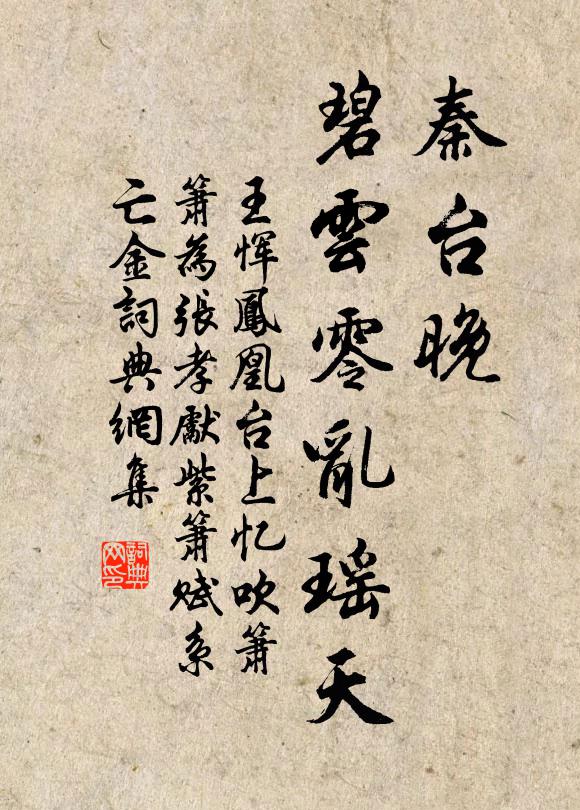 秦台晚
碧雲零亂瑶天
王惲鳳凰台上忆吹簫
簫為張孝獻紫簫賦系
亡金詞典網集
詞典
网印